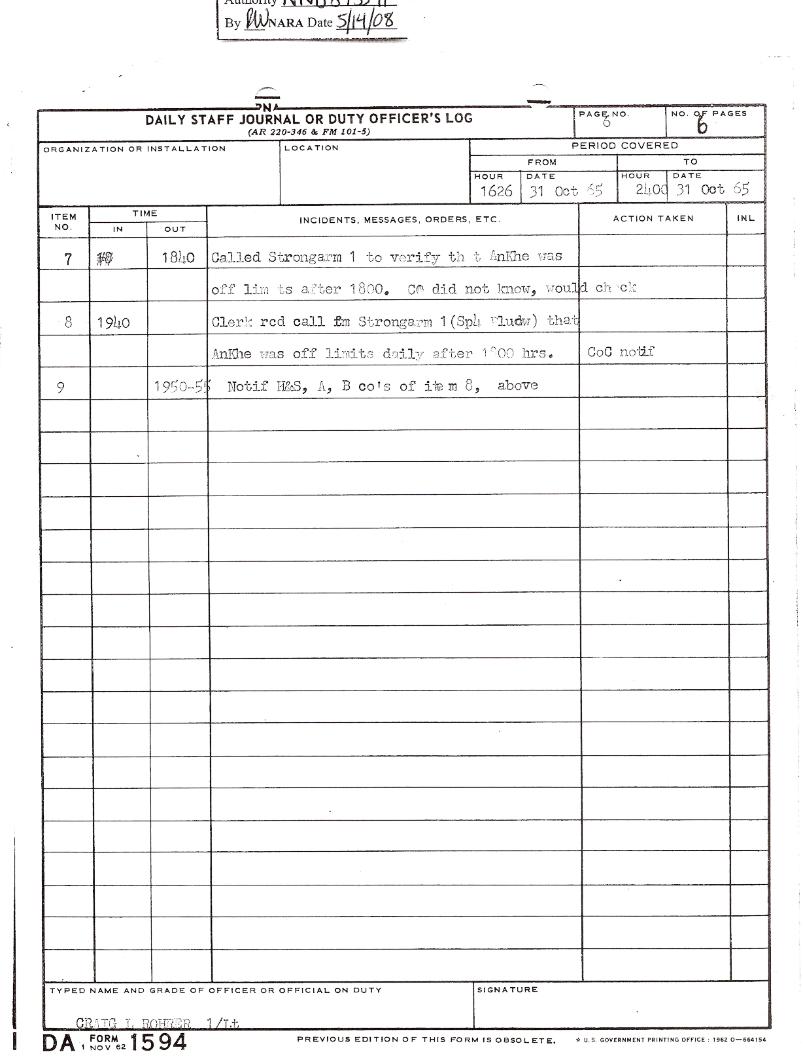 Authority
By RW NARA Date 5/14/08
DAILY STAFF JOURNAL OR DUTY OFFICER'S LOG
(AR 220-346 & FM 101-5)
PAGE NO.
6
NO. OF PAGES
6
ORGANIZATION OR INSTALLATION
LOCATION
PERIOD COVERED
FROM
TO
HOUR DATE HOUR DATE
1626 31 Oct 65 2400 31 Oct 65
ITEM NO.
TIME
IN OUT
INCIDENTS, MESSAGES, ORDERS, ETC.
ACTION TAKEN
INL
7 1840 Called Strongarm 1 to verify th t AnKhe was
off lim ts after 1800. did not know, would ch ck
8 1940 Clerk rcd call fm Strongarm 1(Sp4 ludw) that
AnKhe was off limits daily after hrs. CoC notif
9 1950-55 Notif H&S, A, B co's of item 8, above
TYPED NAME AND GRADE OF OFFICER OR OFFICIAL ON DUTY
SIGNATURE
CRAIG L ROHRER 1/Lt
DA FORM 1 NOV 62 1594
PREVIOUS EDITION OF THIS FORM IS OBSOLETE.
* U.S. GOVERNMENT PRINTING OFFICE : 1962 O—664154